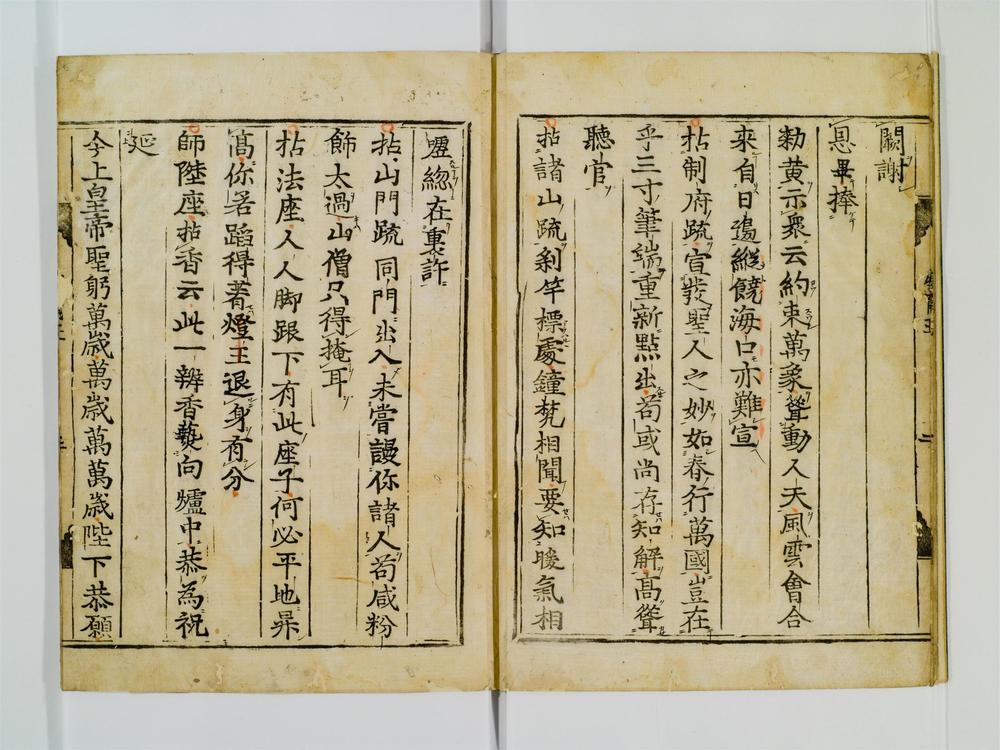 闕謝
恩畢捧
勑黄示衆云約束萬象聳動人天風雲會合
来自日邉縱饒海口亦難宣
拈制府疏宣發聖人之妙如春行萬國豈在
乎三寸筆端重新點出苟或尚存知解高聳
聽官
拈諸山疏刹竿標處鐘梵相聞要知暖氣相
嘘緫在裏許
拈山門疏同門出入未嘗謾你諸人苟咸粉
飾太過山僧只得掩耳
拈法座人人脚跟下有此座子何必平地杲
髙你若蹈得著燈王退身有分
師陞座拈香云此一瓣香爇向爐中恭為祝
延
今上皇帝聖躬萬歳萬歳萬萬歳陛下恭願